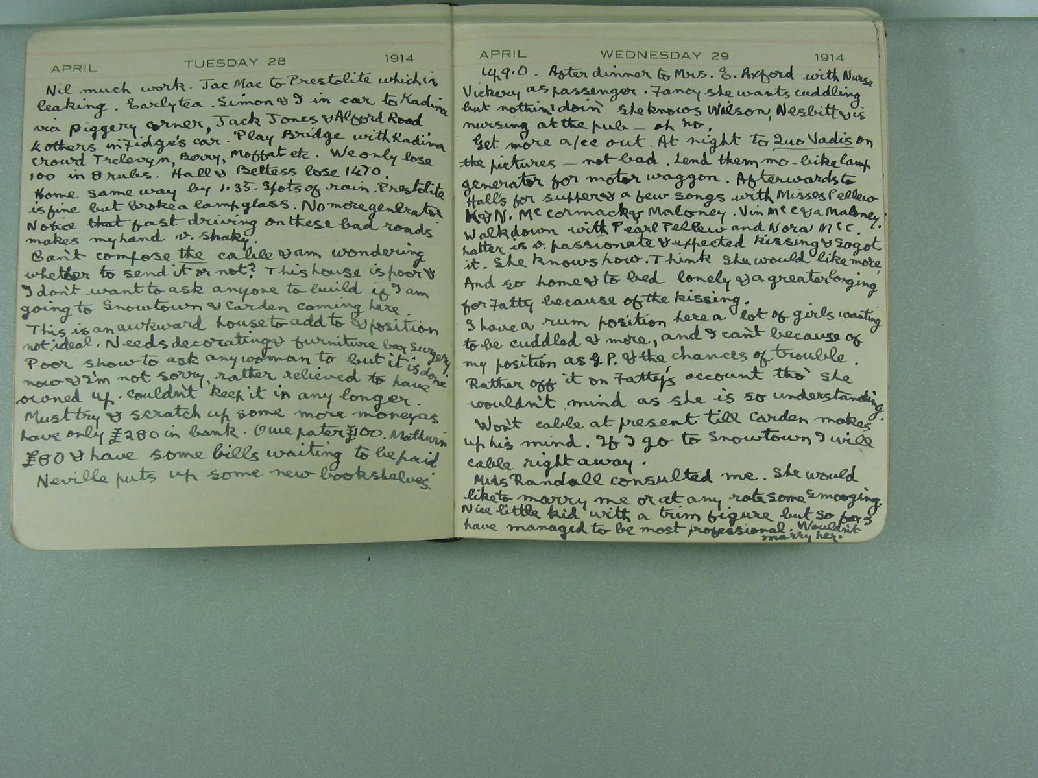 APRIL TUESDAY 28 1914
Nil much work. Jac Mac to Prestolite which is
leaking. Early tea. Simon & I in car to Kadina
via Piggery corner, Jack Jones & Alford Road
& others in Fidge's car. Play Bridge with Kadina
crowd Trelevyn, Berry, Moffat etc. We only lose
100 in 8 rubs. Hall & Beltess lose 1470.
Home same way by 1.35. Spots of rain. Prestolite
is fine but broke a lamp glass. No more generator
Notice that fast driving on these bad roads
makes my hand v. shaky.
Can't compose the cable & am wondering
whether to send it or not? This house is poor &
I don't want to ask anyone to build if I am
going to Snowtown & Carden coming here.
This is an awkward house to add to & position
not ideal. Needs decorating & furniture bar surgery,
Poor show to ask any woman to but it is done
now & I'm not sorry, rather relieved to have
owned up. Couldn't keep it in any longer.
Must try & scratch up some more money as
have only £280 in bank. Owe pater £100. Mothwin
£80 & have some bills waiting to be paid.
Neville puts up some new bookshelves.
APRIL WEDNESDAY 29 1914
4/9.0. After dinner to Mrs. S. Axford with Nurse
Vickery as passenger. Fancy she wants cuddling
but nothin' doin' she knows Wilson, Nesbitt & is
nursing at the pub — oh no.
Get more a/cc out. At night to Quo Vadis on
the pictures — not bad. Lend them mo-bike lamp
generator for motor waggon. Afterwards to
Hall's for supper & a few songs with Misses Pellew
K & N. McCormack & Maloney. Vin McC & a Maloney.
Walk down with Pearl Pellew and Nora McC. L.
latter is v. passionate & expected kissing & so got
it. She knows how. Think she would like more,
And so home & to bed lonely & a greater longing
for Fatty because of the kissing.
I have a rum position here a lot of girls wanting
to be cuddled & more, and I can't because of
my position as G.P. & the chances of trouble
Rather off it on Fatty's account tho' she
wouldn't mind as she is so understanding.
Won't cable at present till Carden makes
up his mind. If I go to Snowtown I will
cable right away.
Miss Randall consulted me. She would
like to marry me or at any rate some smooging.
Nice little kid with a trim figure but so far I
have managed to be most professional. Wouldn't
marry her.